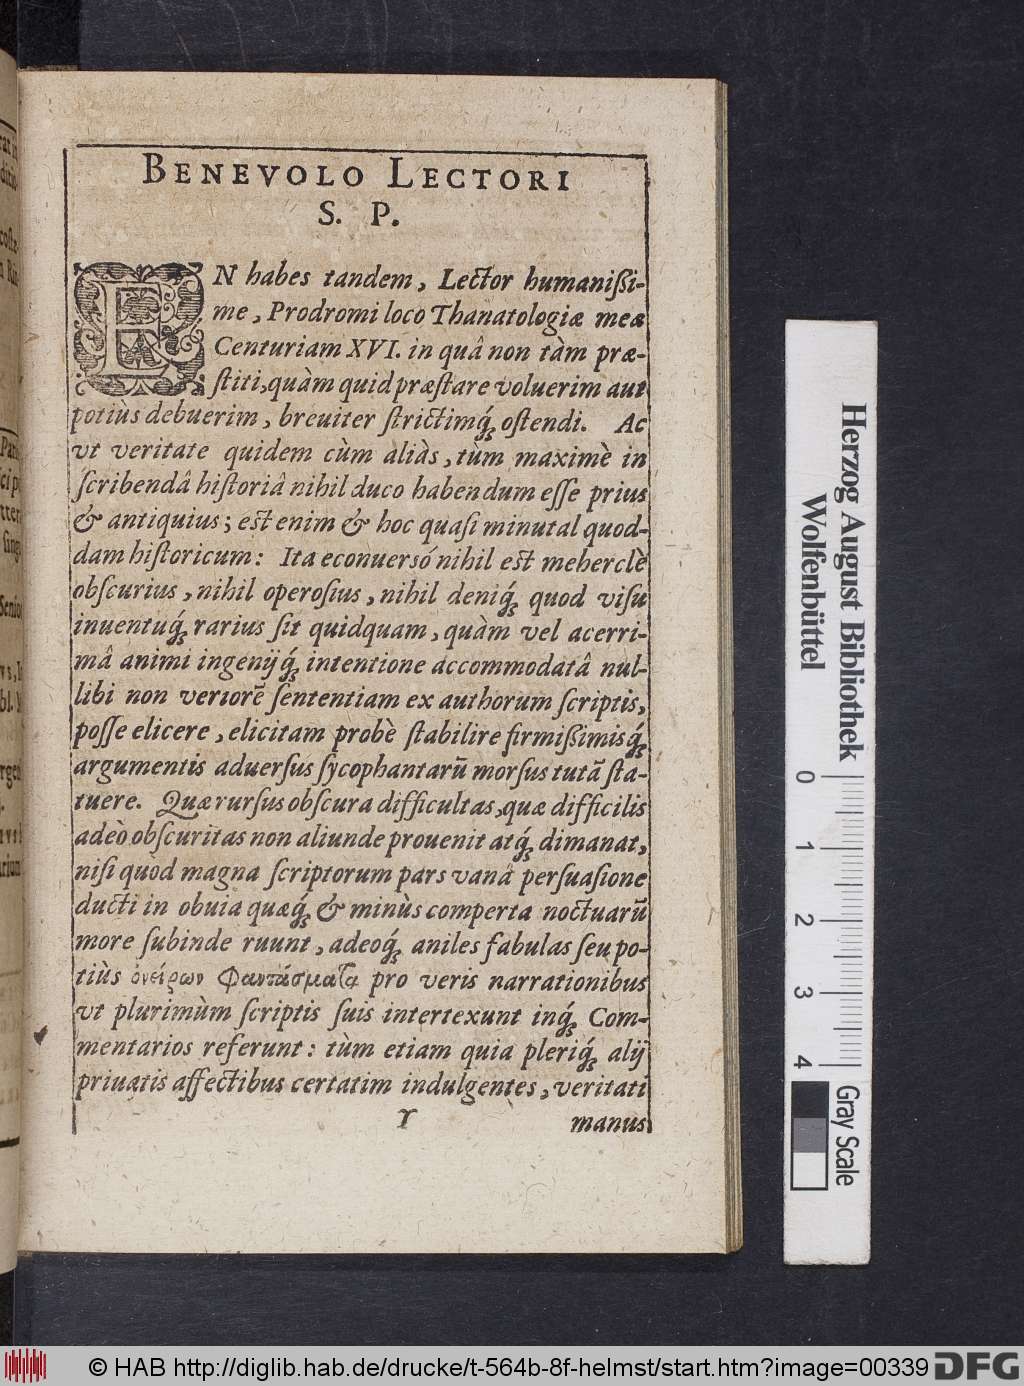 BENEVOLO LECTORI
S. P.
EN habes tandem, Lector humanißi-
me, Prodromi loco Thanatologiæ meæ
Centuriam XVI. in quâ non tàm præ-
ſtiti, quàm quid præſtare voluerim aut
potiùs debuerim, breuiter ſtrictimq́; oſtendi. Ac
vt veritate quidem cùm aliàs, tùm maximè in
ſcribendâ hiſtoriâ nihil duco habendum eſſe prius
& antiquius; eſt enim & hoc quaſi minutal quod-
dam hiſtoricum: Ita econuersó nihil eſt meherclè
obſcurius, nihil operoſius, nihil deniq́; quod viſu
inuentuq́; rarius ſit quidquam, quàm vel acerri-
mâ animi ingenijq́; intentione accommodatâ nul-
libi non veriorẽ ſententiam ex authorum ſcriptis,
poſſe elicere, elicitam probè ſtabilire firmißimisq́;
argumentis aduerſus ſycophantarũ morſus tutã ſta-
tuere. Quæ rurſus obſcura difficultas, quæ difficilis
adeò obſcuritas non aliunde prouenit atq́; dimanat,
niſi quòd magna ſcriptorum pars vanâ perſuaſione
ducti in obuia quæq́; & minùs comperta noctuarũ
more ſubinde ruunt, adeoq́; aniles fabulas ſeu po-
tiùs ὀνείρων φαντάσματα pro veris narrationibus
vt plurimùm ſcriptis ſuis intertexunt inq́; Com-
mentarios referunt: tùm etiam quia pleriq́; alij
priuatis affectibus certatim indulgentes, veritati
Y manus
Herzog August Bibliothek
Wolfenbüttel
0 1 2 3 4
Gray Scale
© HAB http://diglib.hab.de/drucke/t-564b-8f-helmst/start.htm?image=00339
DFG